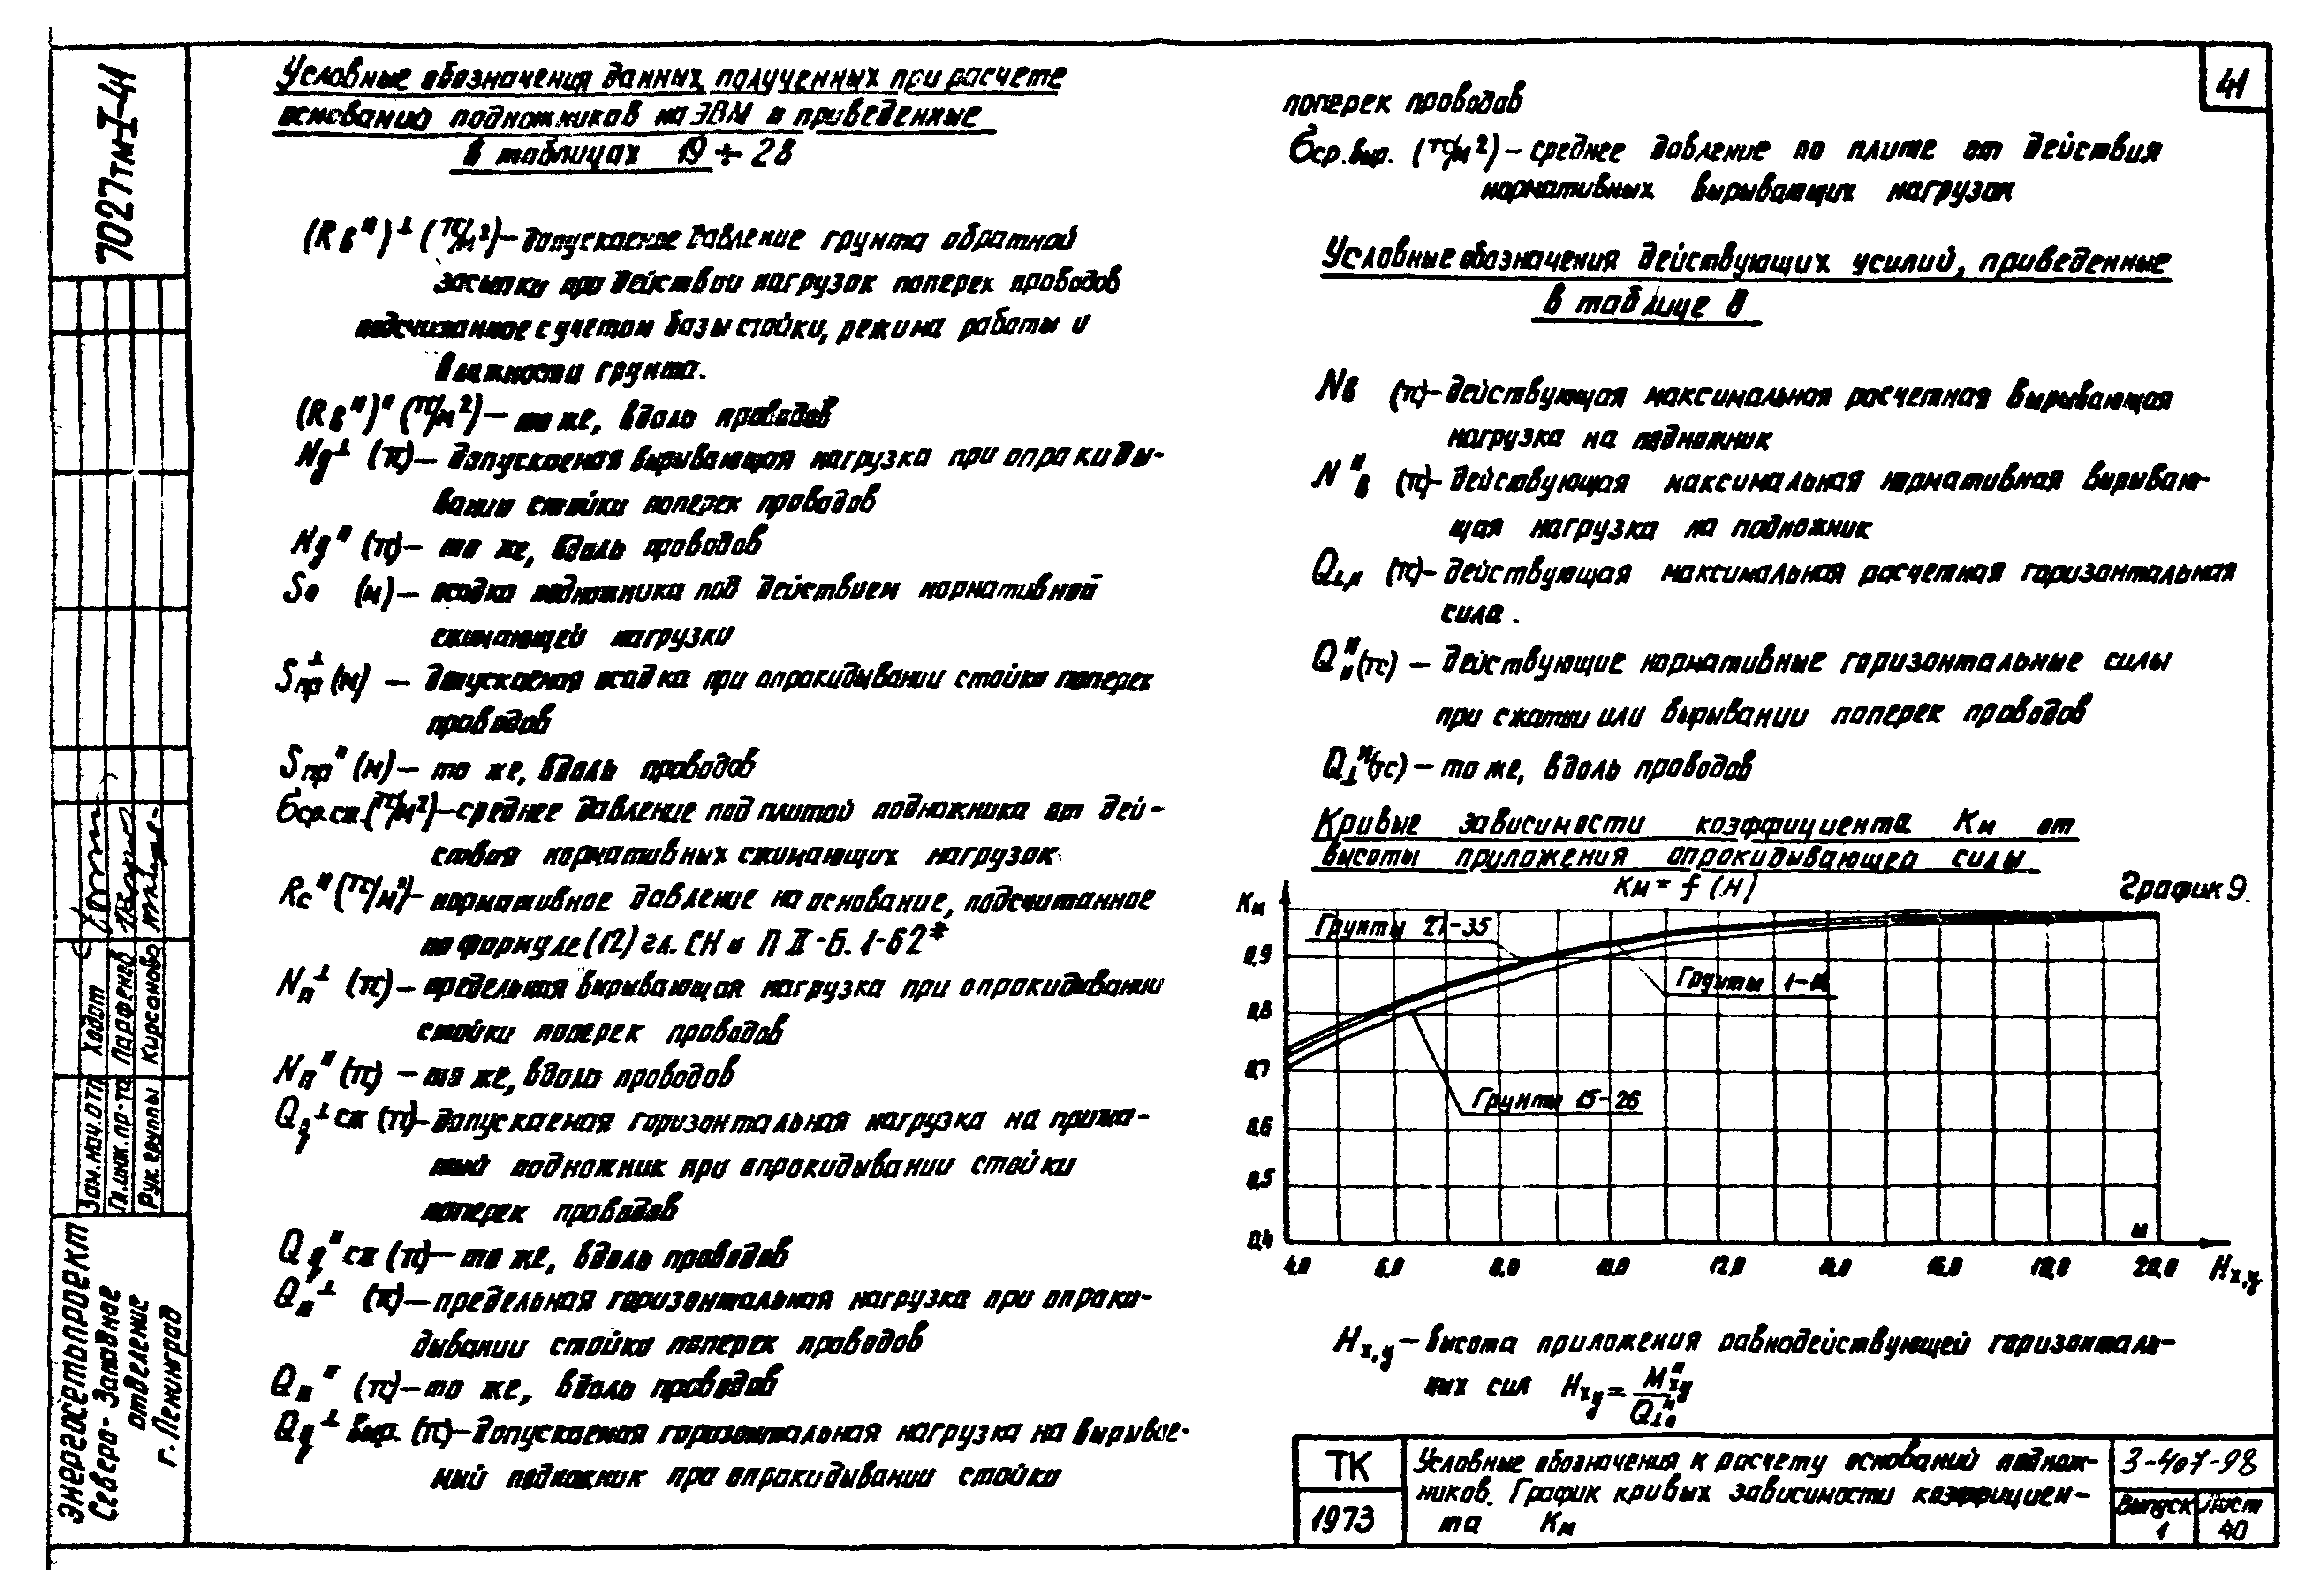 Условные обозначения данных, полученных при расчете
оснований подножников на ЭВМ и приведенные
в таблицах 19 ÷ 28
(Rвᴴ)⊥ (тс/м²) – допускаемое давление грунта обратной
засыпки при действии нагрузок поперек проводов
подсчитанное с учетом базы стойки, режима работы и
влажности грунта.
(Rвᴴ)" (тс/м²) – то же, вдоль проводов
Nд⊥ (тс) – допускаемая вырывающая нагрузка при опракиды-
вании стойки поперек проводов
Nд" (тс) – то же, вдоль проводов
Sо (м) – осадка подножника под действием нормативной
сжимающей нагрузки
Sпр⊥ (м) – допускаемая осадка при опрокидывании стойки поперек
проводов
Sпр" (м) – то же, вдоль проводов
бср.сж. (тс/м²) – среднее давление под плитой подножника от дей-
ствия нормативных сжимающих нагрузок
Rсᴴ (тс/м²) – нормативное давление на основание, подсчитанное
по формуле (12) гл. СН и П II-Б. 1-62*
Nп⊥ (тс) – предельная вырывающая нагрузка при опрокидывании
стойки поперек проводов
Nп" (тс) – то же, вдоль проводов
Qд⊥ сж (тс) – допускаемая горизонтальная нагрузка на прижа-
тый подножник при опрокидывании стойки
поперек проводов
Qд" сж (тс) – то же, вдоль проводов
Qп⊥ (тс) – предельная горизонтальная нагрузка при опроки-
дывании стойки поперек проводов
Qп" (тс) – то же, вдоль проводов
Qд⊥ выр. (тс) – допускаемая горизонтальная нагрузка на вырывае-
мый подножник при опрокидывании стойки
41
поперек проводов
бср.выр. (тс/м²) – среднее давление по плите от действия
нормативных вырывающих нагрузок
Условные обозначения действующих усилий, приведенные
в таблице 8
Nв (тс) – действующая максимальная расчетная вырывающая
нагрузка на подножник
Nᴴв (тс) – действующая максимальная нормативная вырываю-
щая нагрузка на подножник
Q⊥,п (тс) – действующая максимальная расчетная горизонтальная
сила.
Qᴴп (тс) – действующие нормативные горизонтальные силы
при сжатии или вырывании поперек проводов
Q⊥ᴴ (тс) – то же, вдоль проводов
Кривые зависимости коэффициента Км от
высоты приложения опрокидывающей силы
Км = f (Н)
График 9.
Км
Грунты 27-35
0,9
Грунты 1-14
0,8
0,7
Грунты 15-26
0,6
0,5
0,4
м
4.0 6.0 8.0 10.0 12.0 14.0 16.0 18.0 20.0 Нх,у
Нх,у – высота приложения равнодействующей горизонталь-
ных сил Нху = Мᴴху / Q⊥ᴴп
ТК
1973
Условные обозначения к расчету оснований поднож-
ников. График кривых зависимости коэффициен-
та Км
3-407-98
Выпуск 1
Лист 40
7027тм-I-41
Зам. нач. ОТП Хадот
Гл. инж. пр-та Парфенов
Рук. группы Кирсанова
Энергосетьпроект
Северо-Западное
отделение
г. Ленинград